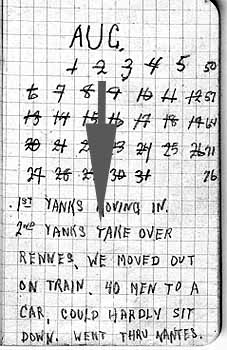 AUG.
1 2 3 4 5 50
6 7 8 9 10 11 12 57
13 14 15 16 17 18 19 64
20 21 22 23 24 25 26 71
27 28 29 30 31 76
1ST YANKS MOVING IN.
2ND YANKS TAKE OVER
RENNES, WE MOVED OUT
ON TRAIN. 40 MEN TO A
CAR, COULD HARDLY SIT
DOWN. WENT THRU NANTES.